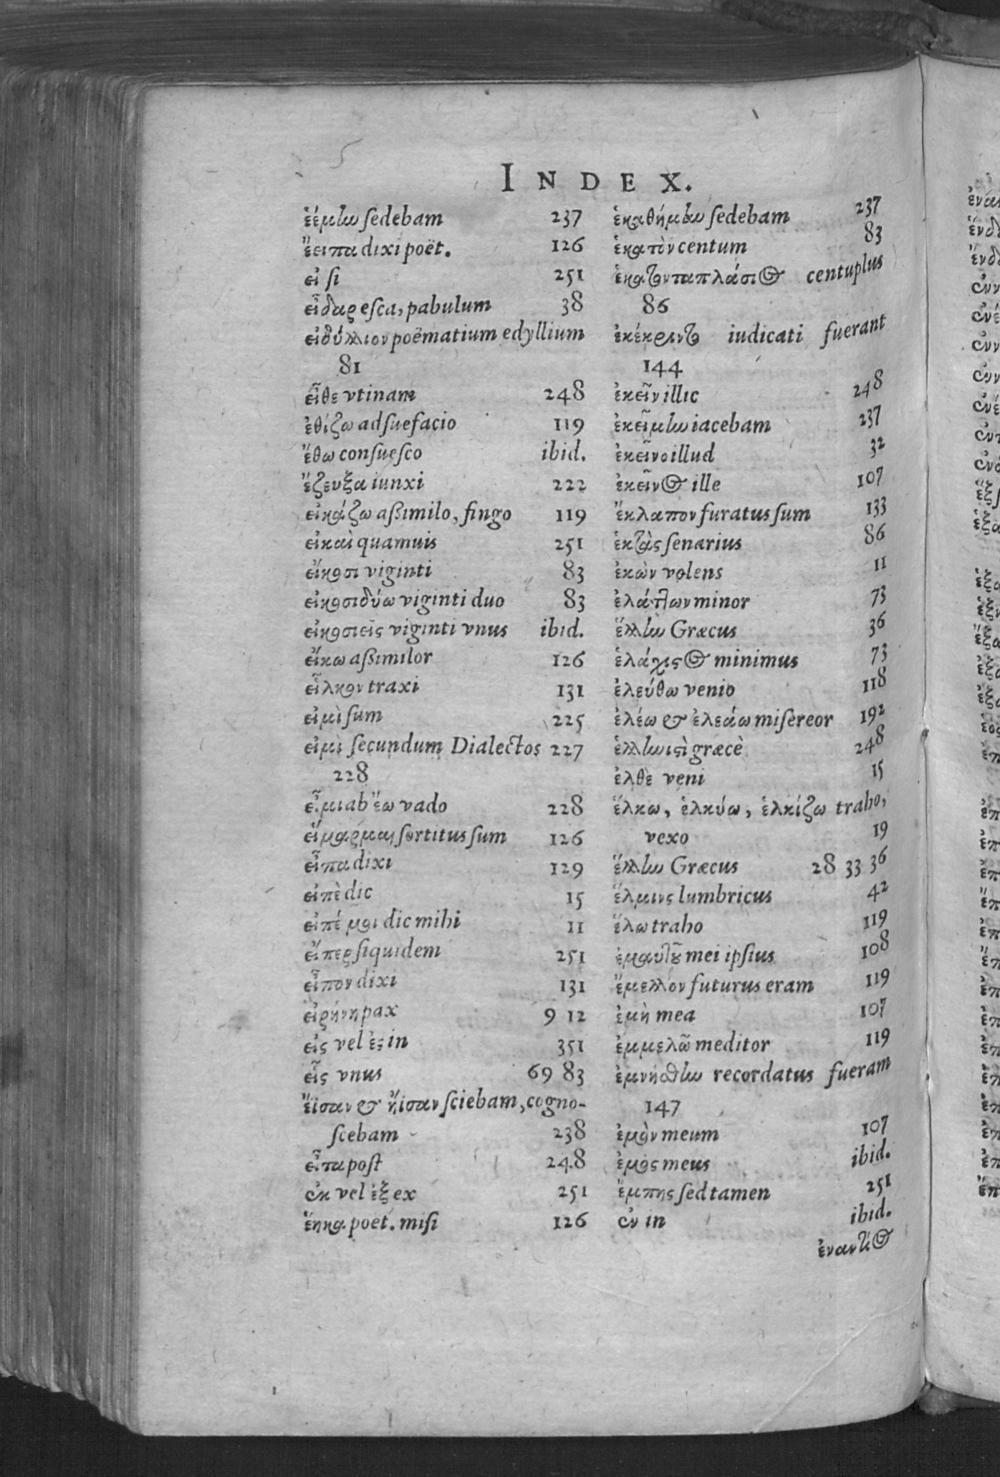 INDEX.
ἑέμην sedebam 237
ἔειπα dixi poët. 126
εἰ si 251
εἶδαρ esca, pabulum 38
εἰδύλλιον poëmatium edyllium
81
εἴθε vtinam 248
ἐθίζω adsuefacio 119
ἔθω consuesco ibid.
ἔζευξα iunxi 222
εἰκάζω assimilo, fingo 119
εἰ καὶ quamuis 251
εἴκοσι viginti 83
εἰκοσιδύω viginti duo 83
εἰκοσιεῖς viginti vnus ibid.
εἴκω assimilor 126
εἷλκον traxi 131
εἰμὶ sum 225
εἰμὶ secundum Dialectos 227
228
εἶμι ab ἔω vado 228
εἵμαρμαι sortitus sum 126
εἶπα dixi 129
εἰπὲ dic 15
εἰπέ μοι dic mihi 11
εἴπερ siquidem 251
εἶπον dixi 131
εἰρήνη pax 9 12
εἰς vel ἐς in 351
εἷς vnus 69 83
ἔισαν & ἤισαν sciebam, cogno-
scebam 238
εἶτα post 248
ἐκ vel ἐξ ex 251
ἕηκα poet. misi 126
ἐκαθήμην sedebam 237
ἑκατὸν centum 83
ἑκατονταπλάσιος centuplus
86
ἐκέκριντο iudicati fuerant
144
ἐκεῖν illic 248
ἐκείμην iacebam 237
ἐκεῖνο illud 32
ἐκεῖνος ille 107
ἔκλαπον furatus sum 133
ἑκτὰς senarius 86
ἑκὼν volens 11
ἐλάττων minor 73
ἕλλην Græcus 36
ἐλάχιστος minimus 73
ἐλεύθω venio 118
ἐλέω & ἐλεάω misereor 192
ἑλληνιστὶ græcè 248
ἐλθὲ veni 15
ἕλκω, ἑλκύω, ἑλκίζω traho,
vexo 19
ἕλλην Græcus 28 33 36
ἕλμινς lumbricus 42
ἕλω traho 119
ἐμαυτοῦ mei ipsius 108
ἔμελλον futurus eram 119
ἐμὴ mea 107
ἐμμελῶ meditor 119
ἐμνήσθην recordatus fueram
147
ἐμὸν meum 107
ἐμὸς meus ibid.
ἔμπης sed tamen 251
ἐν in ibid.
ἐναντίος